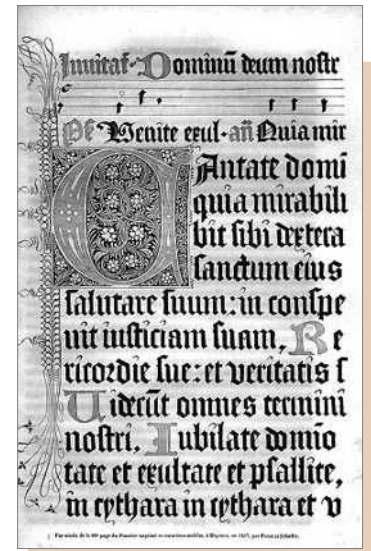 Inuitat. Dominū deum nostr
Ps Venite exul. añ Quia mir
CAntate domi
quia mirabili
bit sibi dextera
sanctum eius
salutare suum: in conspe
uit iusticiam suam, Re
ricordie sue: et veritatis s
Uiderūt omnes termini
nostri, Iubilate domio
tate et exultate et psallite,
in cythara in cythara et v
Fac-simile de la 88e page du Psautier